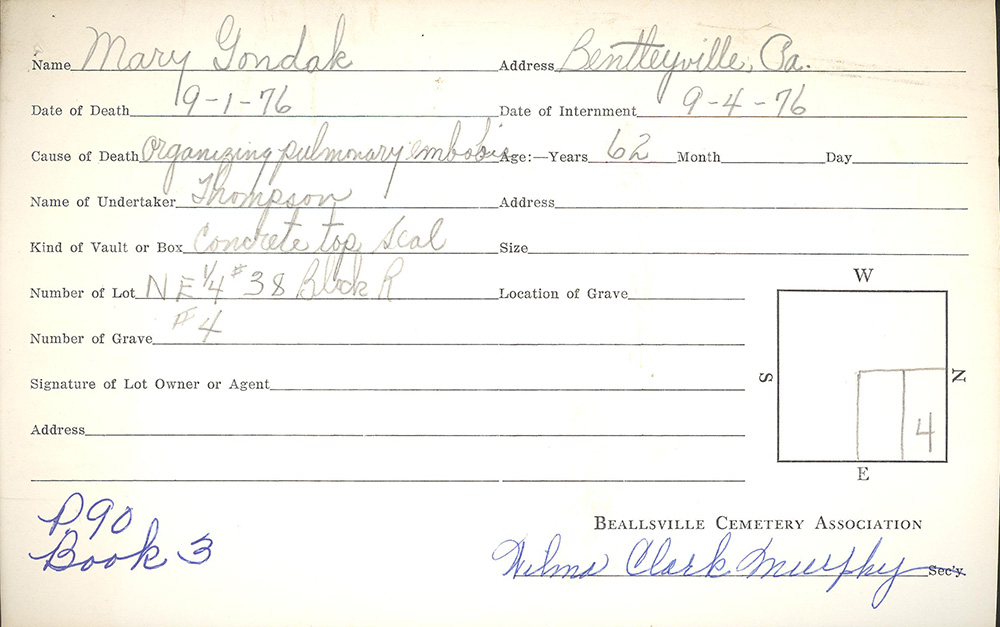 Name Mary Gondak Address Bentleyville, Pa.
Date of Death 9-1-76 Date of Internment 9-4-76
Cause of Death Organizing pulmonary embolis Age:—Years 62 Month Day
Name of Undertaker Thompson Address
Kind of Vault or Box Concrete top seal Size
Number of Lot NE 1/4 #38 Block R Location of Grave
Number of Grave #4
Signature of Lot Owner or Agent
Address
W
S
N
4
E
P. 90
Book 3
BEALLSVILLE CEMETERY ASSOCIATION
Wilma Clark Murphy Sec'y